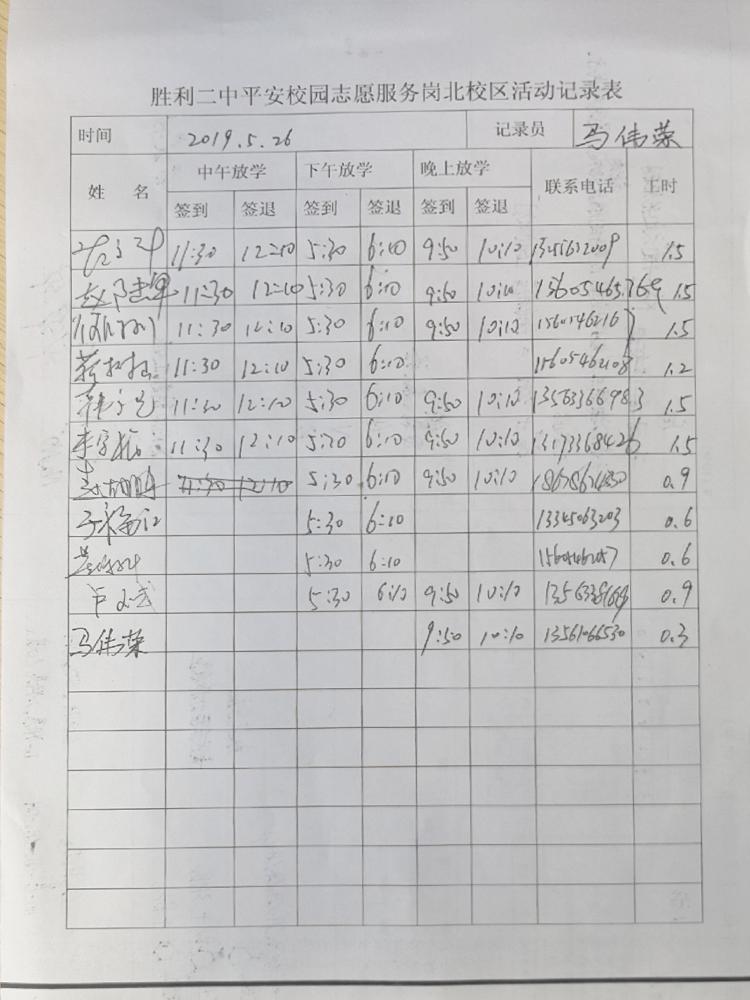 胜利二中平安校园志愿服务岗北校区活动记录表
时间 2019.5.26 记录员 马伟荣
姓 名 中午放学 下午放学 晚上放学 联系电话 工时
签到 签退 签到 签退 签到 签退
11:30 12:10 5:30 6:10 9:50 10:10 1.5
11:30 12:10 5:30 6:10 9:50 10:10 13605465769 1.5
11:30 12:10 5:30 6:10 9:50 10:10 1.5
11:30 12:10 5:30 6:10 15605462108 1.2
11:30 12:10 5:30 6:10 9:50 10:10 13563366983 1.5
11:30 12:10 5:30 6:10 9:50 10:10 13173368426 1.5
11:30 12:10 5:30 6:10 9:50 10:10 0.9
5:30 6:10 13345063203 0.6
5:30 6:10 0.6
5:30 6:10 9:50 10:10 0.9
马伟荣 9:50 10:10 13561066530 0.3